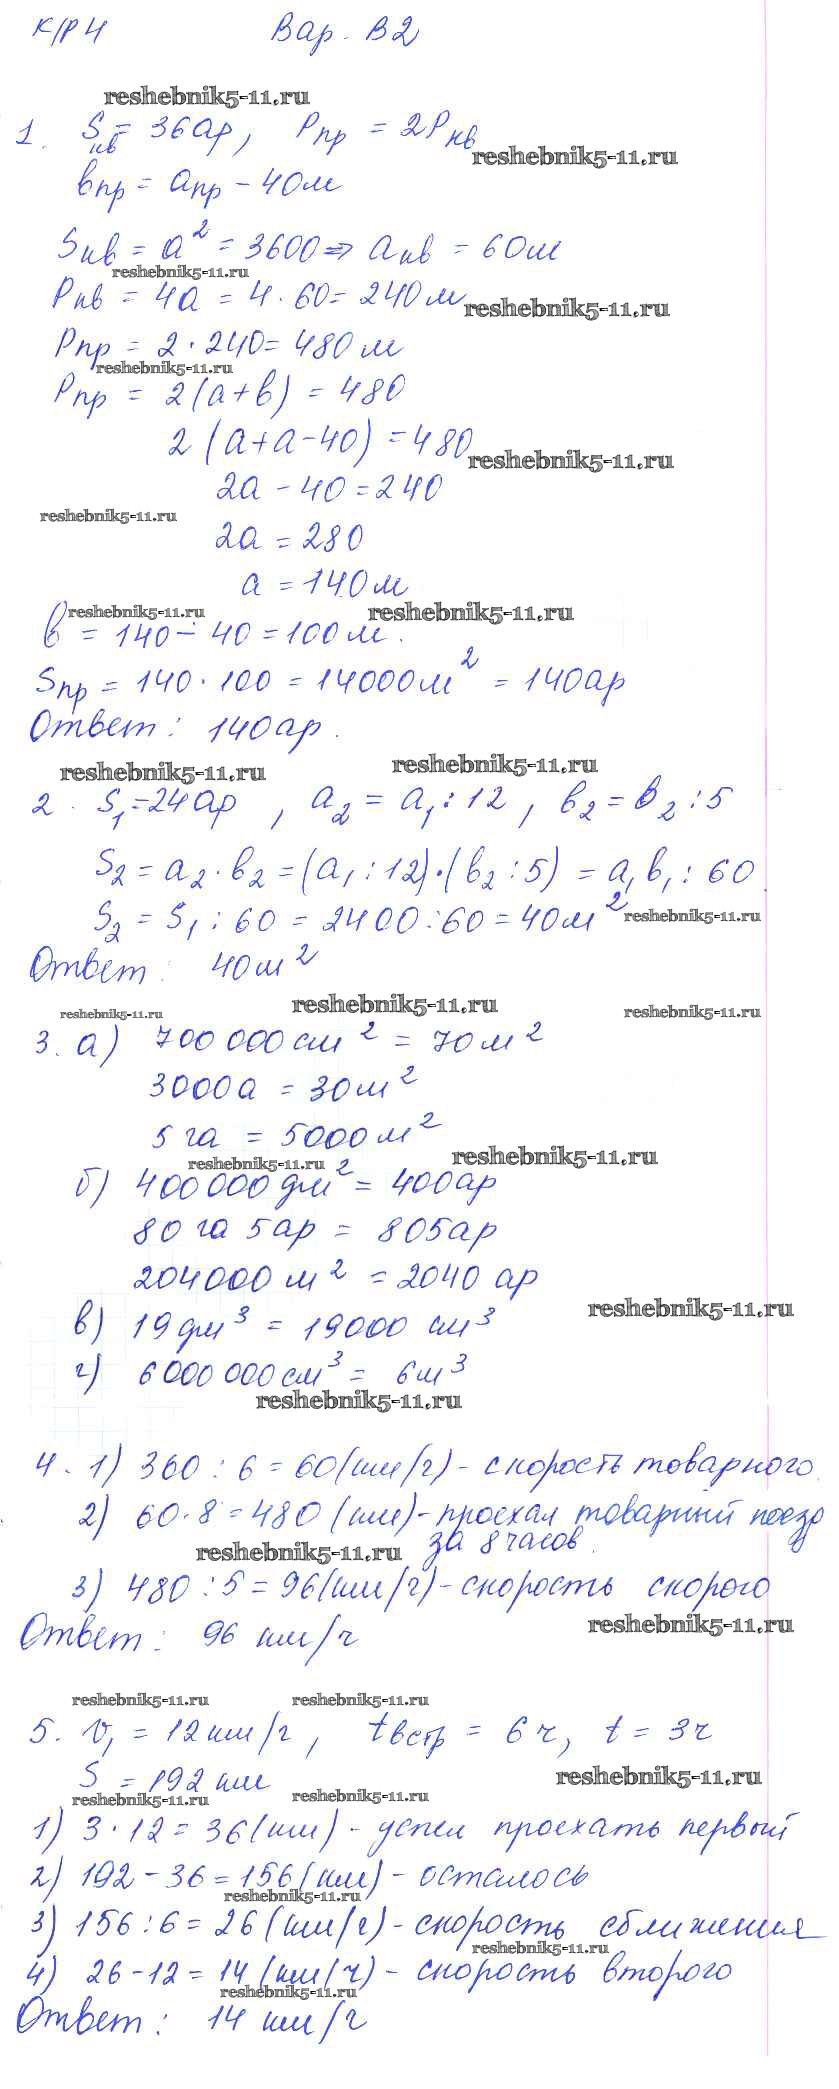 К/Р 4 Вар. В2
reshebnik5-11.ru
1. Sкв = 36ар, Рпр = 2Ркв
reshebnik5-11.ru
bпр = aпр - 40м
Sкв = a² = 3600 => aкв = 60м
reshebnik5-11.ru
Ркв = 4a = 4 · 60 = 240м
reshebnik5-11.ru
Рпр = 2 · 240 = 480м
reshebnik5-11.ru
Рпр = 2(a+b) = 480
2(a+a-40) = 480
reshebnik5-11.ru
2a - 40 = 240
reshebnik5-11.ru
2a = 280
a = 140м
reshebnik5-11.ru reshebnik5-11.ru
b = 140 - 40 = 100м.
Sпр = 140 · 100 = 14000м² = 140ар
Ответ: 140ар.
reshebnik5-11.ru reshebnik5-11.ru
2. S₁=24ар, a₂ = a₁:12, b₂ = b₂:5
S₂ = a₂·b₂ = (a₁:12)·(b₂:5) = a₁b₁:60
S₂ = S₁:60 = 2400:60 = 40м²
reshebnik5-11.ru
Ответ: 40м²
reshebnik5-11.ru reshebnik5-11.ru reshebnik5-11.ru
3. а) 700 000см² = 70м²
3000а = 30м²
5га = 5000м²
reshebnik5-11.ru reshebnik5-11.ru
б) 400 000дм² = 400ар
80га 5ар = 805ар
204000м² = 2040 ар
reshebnik5-11.ru
в) 19дм³ = 19000 см³
г) 6000 000см³ = 6м³
reshebnik5-11.ru
4. 1) 360 : 6 = 60(км/г) - скорость товарного
2) 60·8 = 480 (км) - проехал товарный поезд
за 8 часов.
reshebnik5-11.ru
3) 480 : 5 = 96(км/г) - скорость скорого
Ответ: 96 км/ч
reshebnik5-11.ru
reshebnik5-11.ru reshebnik5-11.ru
5. v₁ = 12км/г, tвстр = 6ч, t = 3ч
S = 192 км
reshebnik5-11.ru
reshebnik5-11.ru reshebnik5-11.ru
1) 3·12 = 36(км) - успел проехать первый
2) 192 - 36 = 156(км) - осталось
reshebnik5-11.ru
3) 156:6 = 26(км/г) - скорость сближения
reshebnik5-11.ru
4) 26-12 = 14(км/ч) - скорость второго
reshebnik5-11.ru
Ответ: 14 км/г